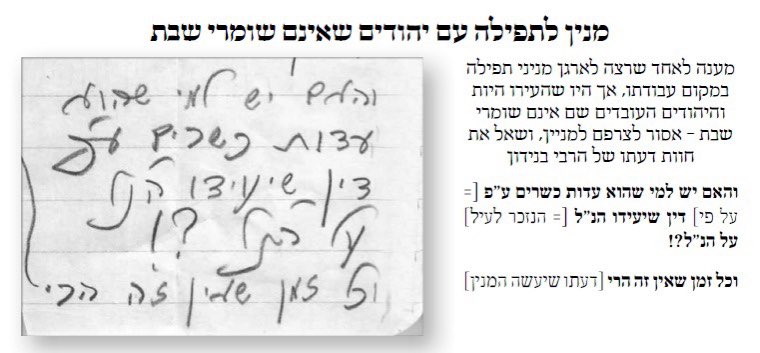 מנין לתפילה עם יהודים שאינם שומרי שבת
מענה לאחד שרצה לארגן מניני תפילה
במקום עבודתו, אך היו שהעירו היות
והיהודים העובדים שם אינם שומרי
שבת - אסור לצרפם למניין, ושאל את
חוות דעתו של הרבי בנידון
והאם יש למי שהוא עדות כשרים ע"פ [=
על פי] דין שיעידו הנ"ל [= הנזכר לעיל]
על הנ"ל?!
וכל זמן שאין זה הרי [דעתו שיעשה המנין]
והאם יש למי שהוא
עדות כשרים ע"פ
דין שיעידו הנ"ל
על הנ"ל ?!
וכל זמן שאין ז"ה הרי